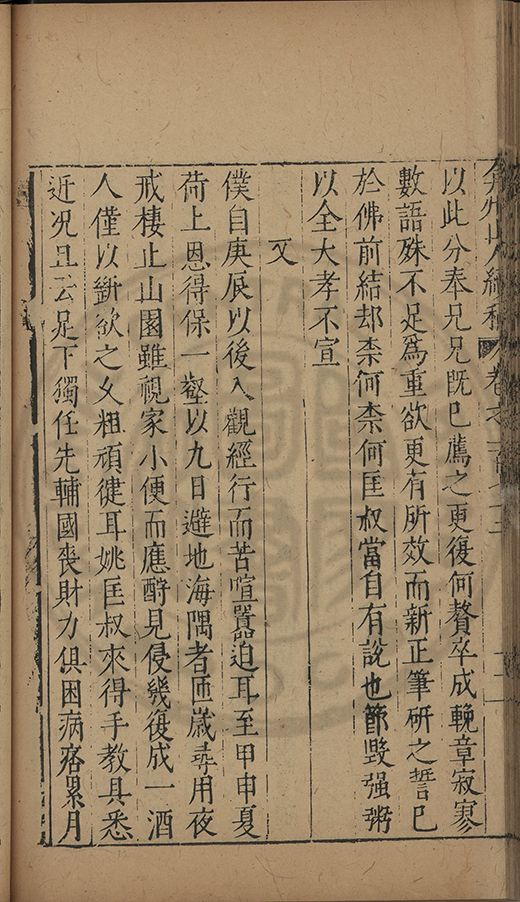 弇州山人續稿 卷之一百七十三
以此分奉兄兄既已薦之更復何贅卒成輓章寂寥
數語殊不足為重欲更有所效而新正筆研之誓已
於佛前結却柰何柰何匡叔當自有說也節毀强粥
以全大孝不宣
又
僕自庚辰以後入觀經行而苦喧囂迫耳至甲申夏
荷上恩得保一壑以九日避地海隅者匝歲尋用夜
戒棲止山園雖視家小便而應酧見侵幾復成一酒
人僅以斷欲之久粗頑健耳姚匡叔來得手教具悉
近况且云足下獨任先輔國喪財力俱困病瘩累月